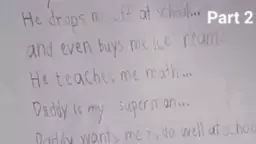 He drops me off at school...
Part 2
and even buys me ice cream
He teaches me math...
Daddy is my superman...
Daddy wants me to do well at school